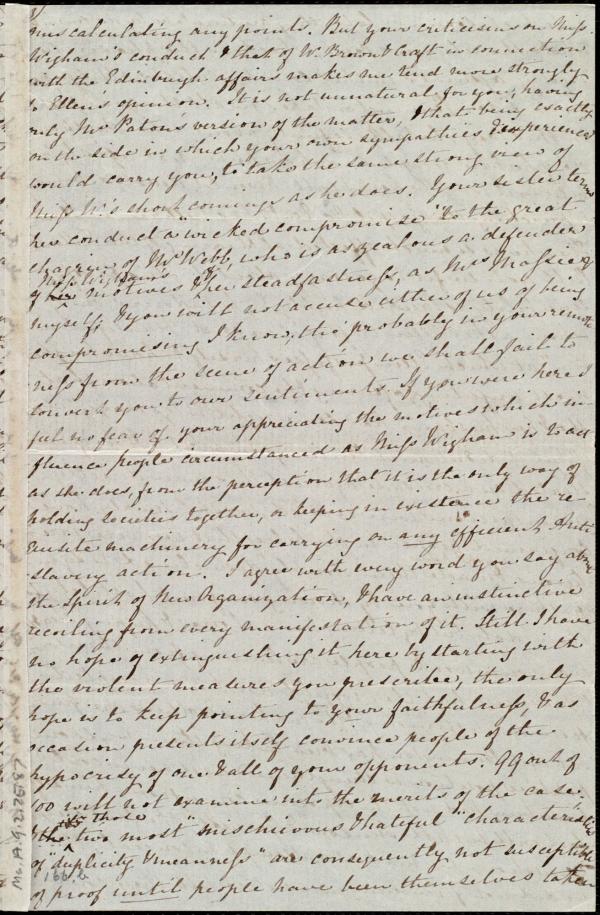 miscalculating any points. But your criticisms on Miss
Wigham's conduct & that of W. Brown & Craft in connection
with the Edinburgh affairs makes me tend more strongly
to Ellen's opinion. It is not unnatural for you, having
only Mr Paton's version of the matter, & that being exactly
on the side in which your own sympathies & experience
would carry you, to take the same strong view of
Miss W.'s short comings as he does. Your sister terms
her conduct a "wicked compromise" to the great
chagrin of Mr Webb, who is as zealous a defender
Miss Wigham's of
of her motives & her steadfastness, as Mrs Massie &
myself; & you will not accuse either of us of being
compromising I know, tho' probably in your remote
ness from the scene of action we shall fail to
convert you to our sentiments. If you were here I
feel no fear of your appreciating the motives which in-
fluence people circumstanced as Miss Wigham is to act
as she does, from the perception that it is the only way of
holding societies together, or keeping in existence the re-
quisite machinery for carrying on any efficient Anti
-slavery action. I agree with every word you say about
the Spirit of New Organization, & have an instinctive
recoiling from every manifestation of it. Still I have
no hope of extinguishing it here by starting with
the violent measures you prescribe, the only
hope is to keep pointing to your faithfulness, & as
occasion presents itself convince people of the
hypocrisy of one & all of your opponents. 99 out of
100 will not examine into the merits of the case.
those
& the two most "mischievous & hateful" "characteristics
of duplicity & meanness" are consequently not susceptible
of proof until people have been themselves taken
Ms. A. 9. 2. 26. 87
166. b